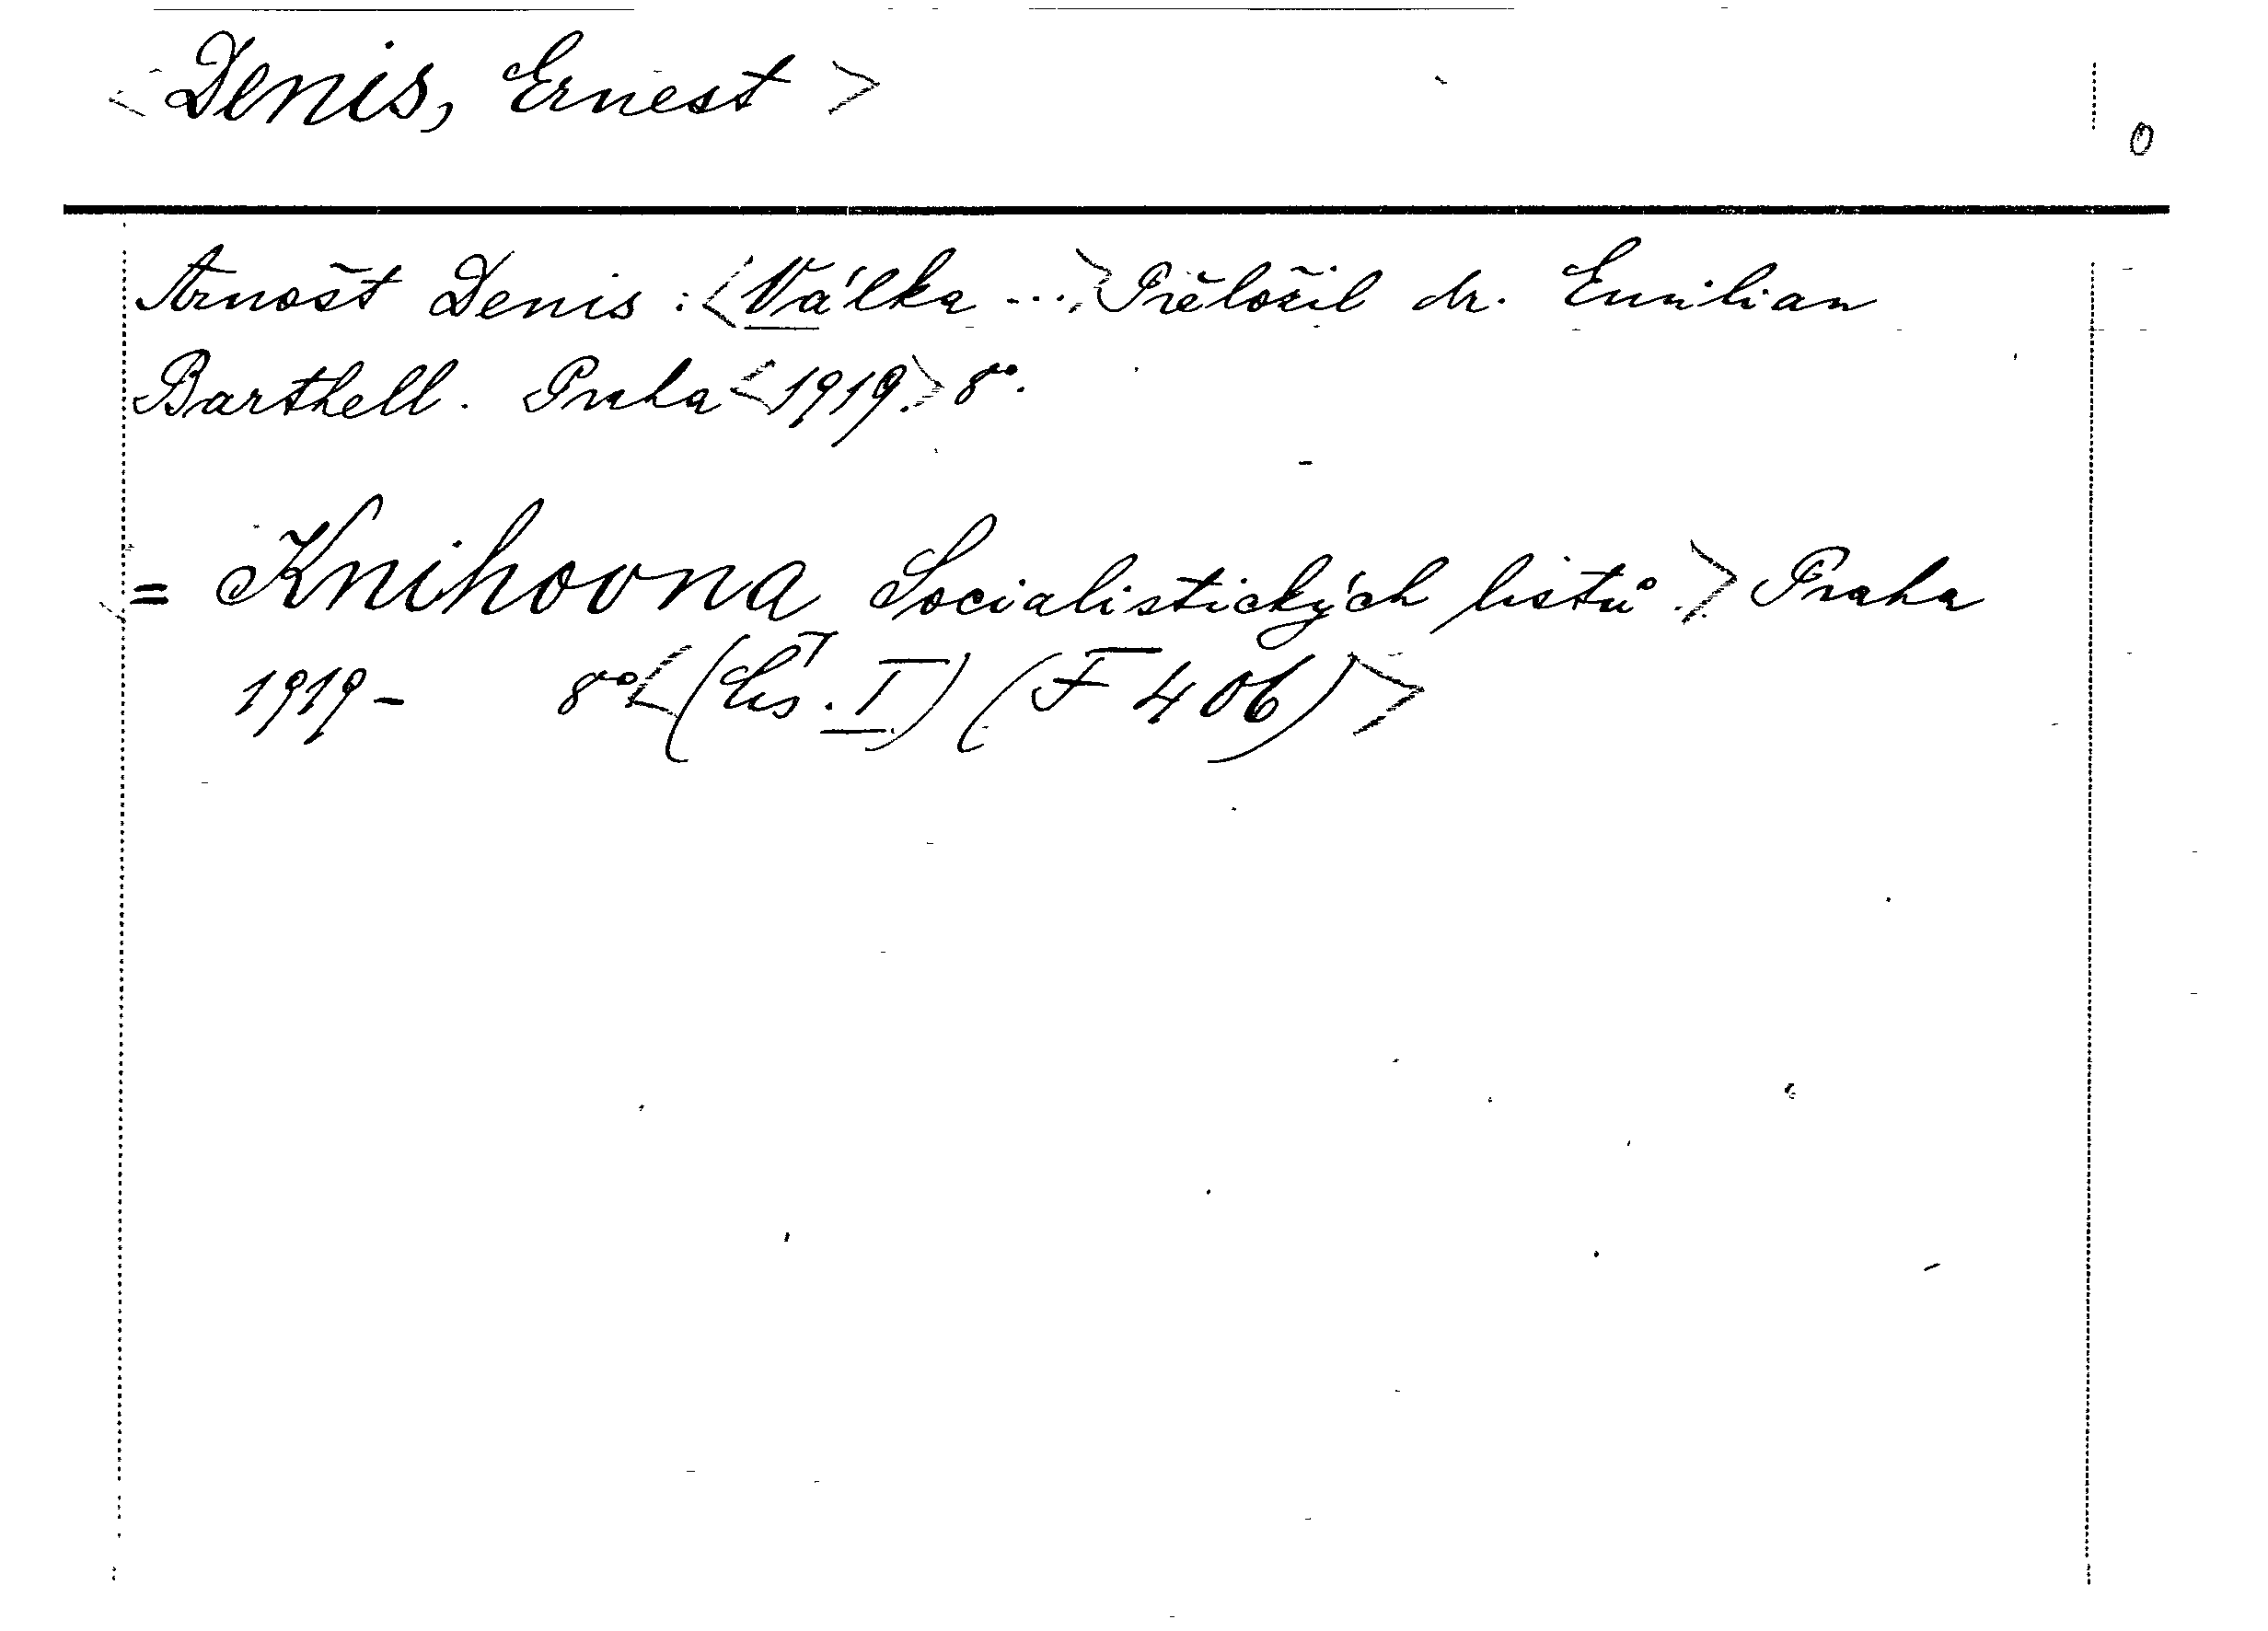 <Denis, Ernest>
0
Arnošt Denis: <Válka ...> Přeložil dr. Emilian
Barthell. Praha <1919.> 8°.
= Knihovna Socialistických listů.> Praha
1919- 8° <(čís. I) (F 406)>